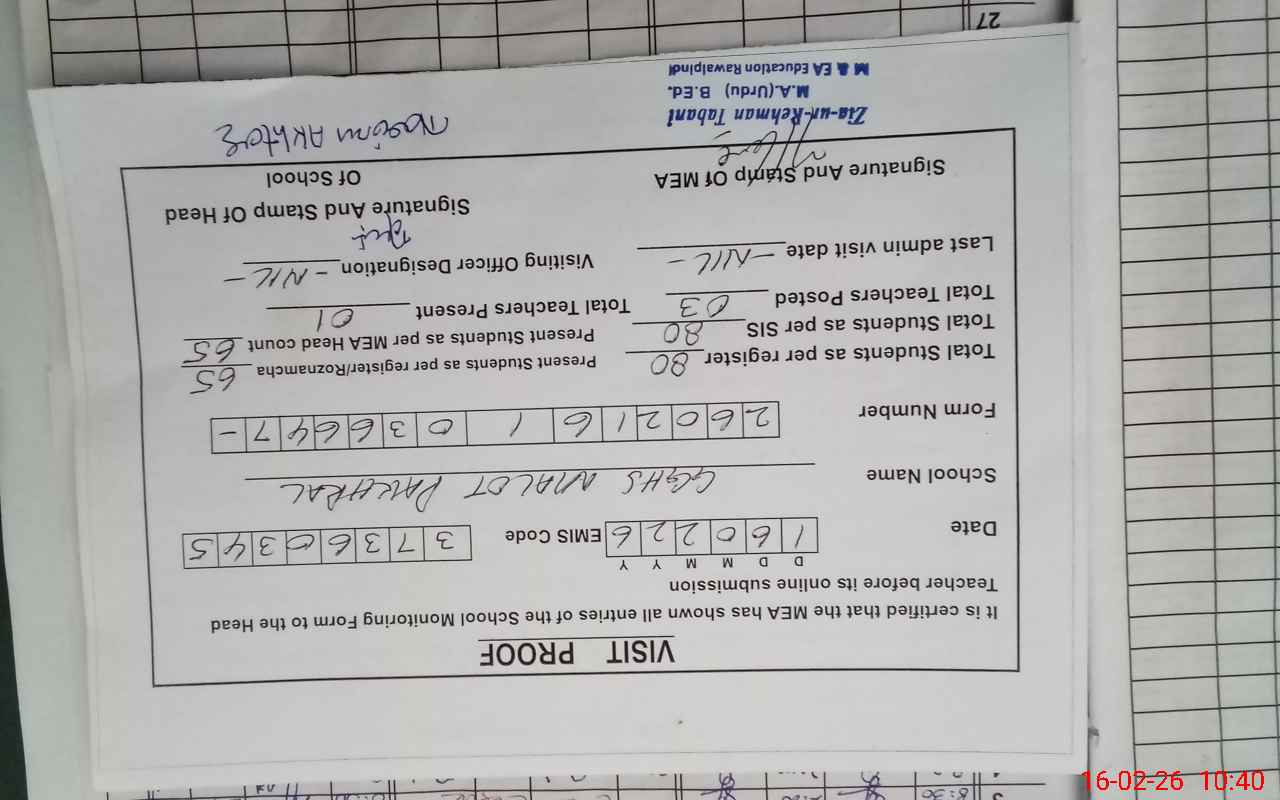 VISIT PROOF
It is certified that the MEA has shown all entries of the School Monitoring Form to the Head
Teacher before its online submission
D D M M Y Y
Date 1 6 0 2 2 6 EMIS Code 3 7 3 6 0 3 4 5
School Name GGHS MALOT
Form Number 2 6 0 2 1 6 1 0 3 6 6 4 7 -
Total Students as per register 80 Present Students as per register/Roznamcha 65
Total Students as per SIS 80 Present Students as per MEA Head count 65
Total Teachers Posted 03 Total Teachers Present 01
Last admin visit date -NIL- Visiting Officer Designation -NIL-
Signature And Stamp Of MEA Signature And Stamp Of Head
Of School
Zia-ur-Rehman Tabani
M.A.(Urdu) B.Ed.
M & EA Education Rawalpindi
27
8:30
16-02-26 10:40